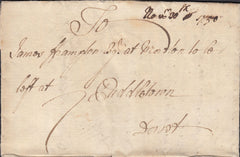 Nov.r 30th 1740
To
James Frampton Esq.r at Moreton to be
left at
Puddletown
Dorset